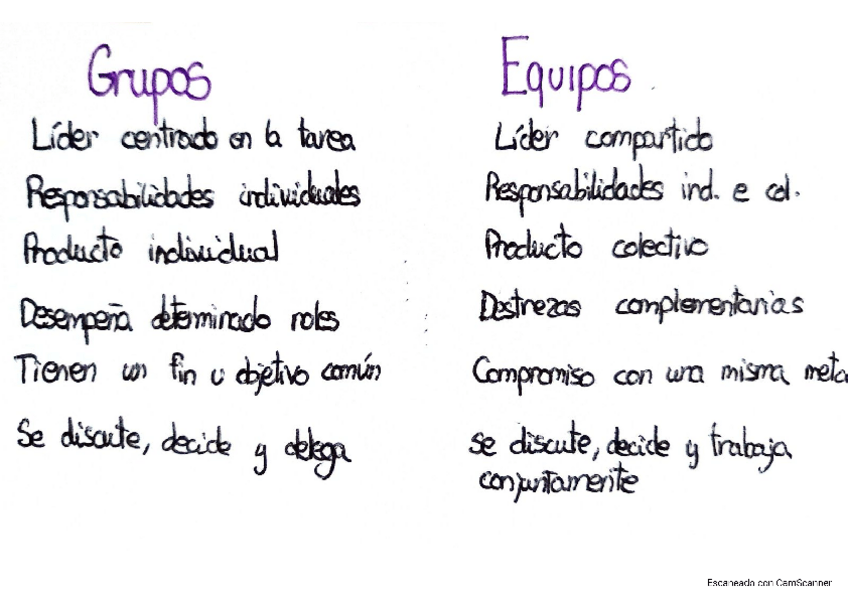 Grupos
Líder centrado en la tarea
Responsabilidades individuales
Producto individual
Desempeña determinado roles
Tienen un fin u objetivo común
Se discute, decide y delega
Equipos
Líder compartido
Responsabilidades ind. e col.
Producto colectivo
Destrezas complementarias
Compromiso con una misma meta
se discute, decide y trabaja
conjuntamente
Escaneado con CamScanner